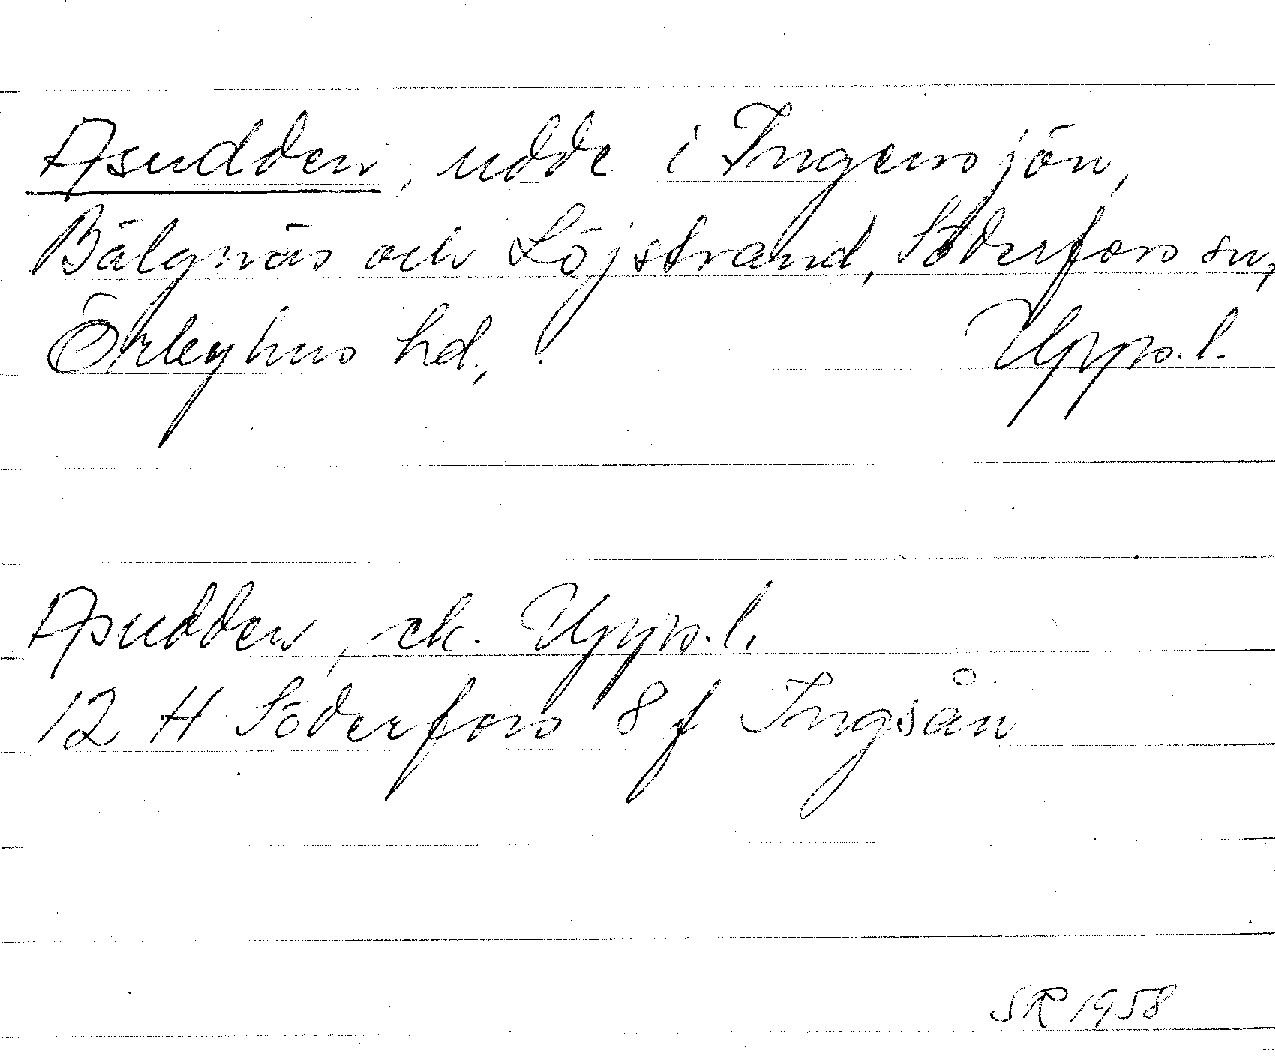 Asudden, udde i Ingensjön,
Bälgnäs och Löjstrand, Söderfors sn,
Örbyhus hd, Upps.l.
Asudden, ek. Upps.l.
12 H Söderfors 8 f Ingsån
SR 1958